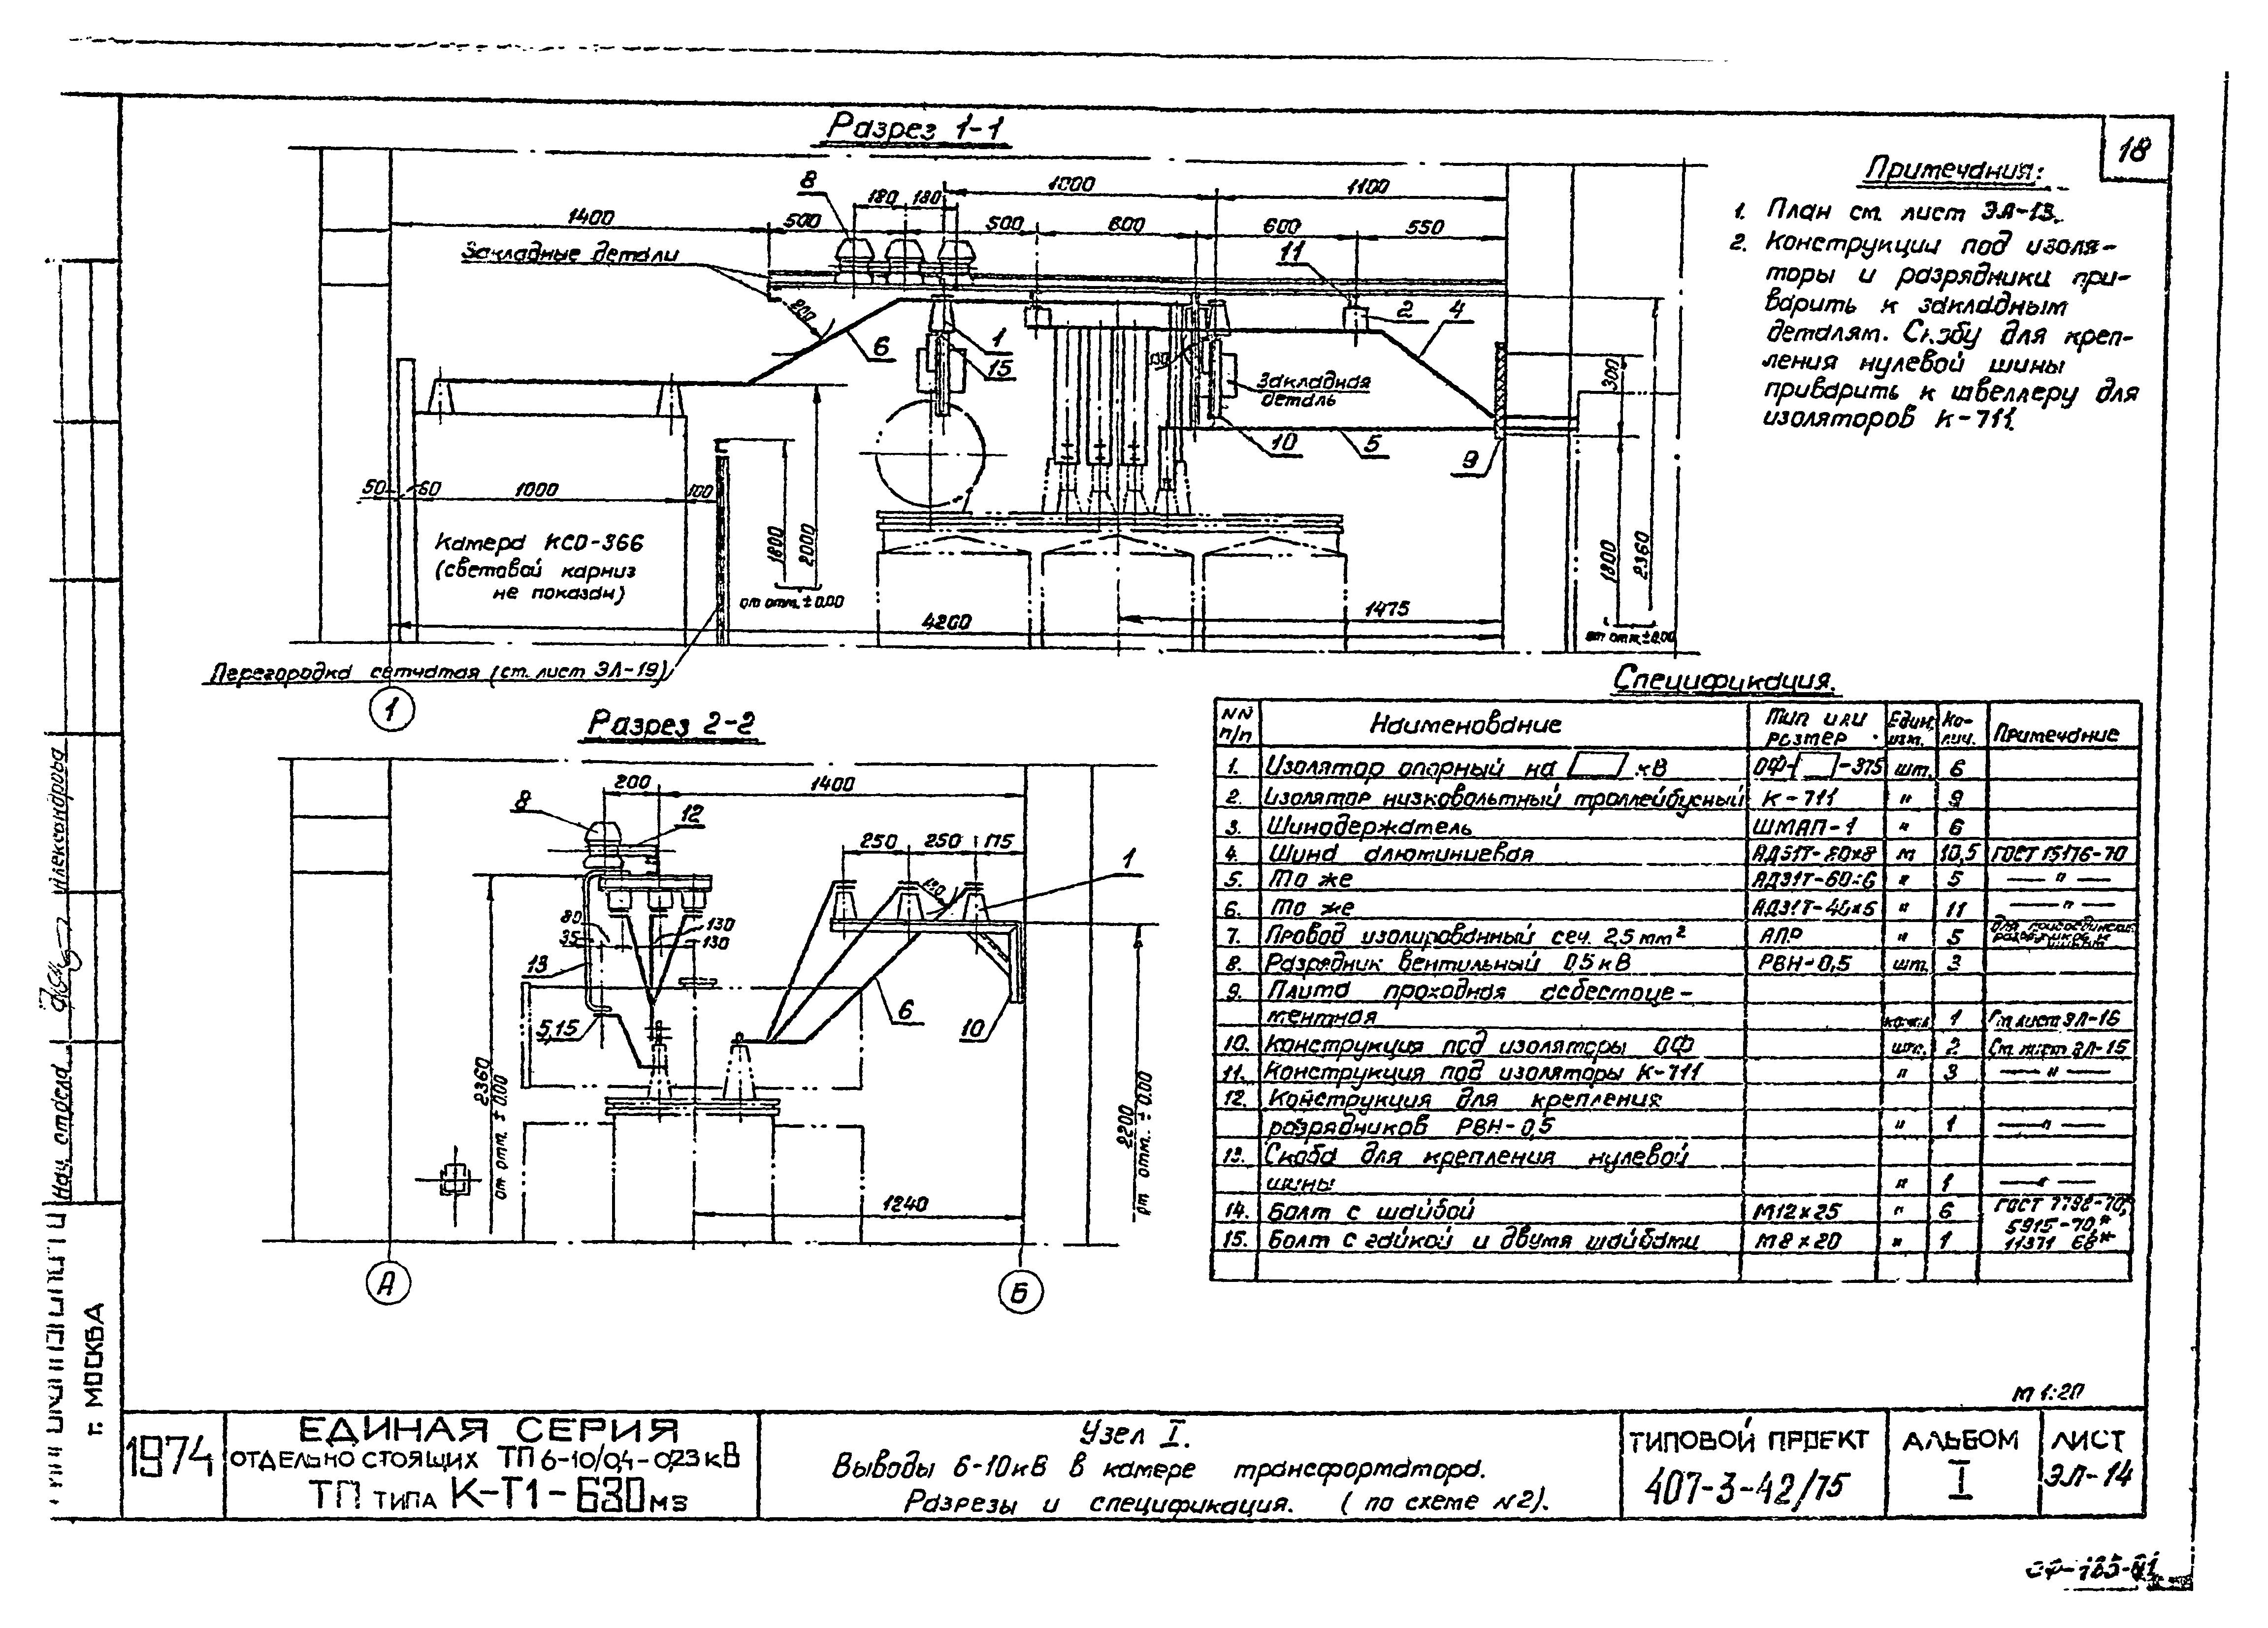 18
Разрез 1-1
Примечания:
1. План см. лист ЭЛ-13.
2. Конструкции под изоля-
торы и разрядники при-
варить к закладным
деталям. Скобу для креп-
ления нулевой шины
приварить к швеллеру для
изоляторов К-711.
8
180 180
1000
1100
1400
500
500
600
600
550
Закладные детали
11
200
6
1
15
2
4
130
Закладная
деталь
10
5
9
300
50 60 1000 100
Камера КСО-366
(световой карниз
не показан)
1800
2000
от отм. ± 0.00
1800
2360
от отм. ± 0.00
4200
1475
Перегородка сетчатая (см. лист ЭЛ-19)
1
Разрез 2-2
200
1400
8
12
250 250 175
1
80
35
130
130
13
5,15
6
10
2360
от отм. ± 0.00
2200
от отм. ± 0.00
1240
А
Б
Спецификация.
NN п/п Наименование Тип или размер Един. изм. Ко-лич. Примечание
1. Изолятор опорный на кВ ОФ- -375 шт. 6
2. Изолятор низковольтный троллейбусный К-711 " 9
3. Шинодержатель ШМАП-1 " 6
4. Шина алюминиевая АД31Т-80х8 м 10,5 ГОСТ 15176-70
5. То же АД31Т-60х6 " 5 — " —
6. То же АД31Т- " 11 — " —
7. Провод изолированный сеч. 2,5 мм² АПР " 5 Для
8. Разрядник вентильный 0,5 кВ РВН-0,5 шт. 3
9. Плита проходная асбестоце-
ментная компл. 1 См лист ЭЛ-16
10. Конструкция под изоляторы ОФ шт. 2 См. лист ЭЛ-15
11. Конструкция под изоляторы К-711 " 3 — " —
12. Конструкция для крепления
разрядников РВН-0,5 " 1 — " —
13. Скоба для крепления нулевой
шины " 1 — " —
14. Болт с шайбой М12х25 " 6 ГОСТ 7798-70,*
5915-70,*
15. Болт с гайкой и двумя шайбами М8х20 " 1 11371-68*
М 1:20
Нач. отдела Александрова
г. МОСКВА
1974
ЕДИНАЯ СЕРИЯ
ОТДЕЛЬНО СТОЯЩИХ ТП 6-10/0,4-0,23 кВ
ТП ТИПА К-Т1-630 М3
Узел I.
Выводы 6-10кВ в камере трансформатора.
Разрезы и спецификация. (по схеме №2).
ТИПОВОЙ ПРОЕКТ
407-3-42/75
АЛЬБОМ
I
ЛИСТ
ЭЛ-14